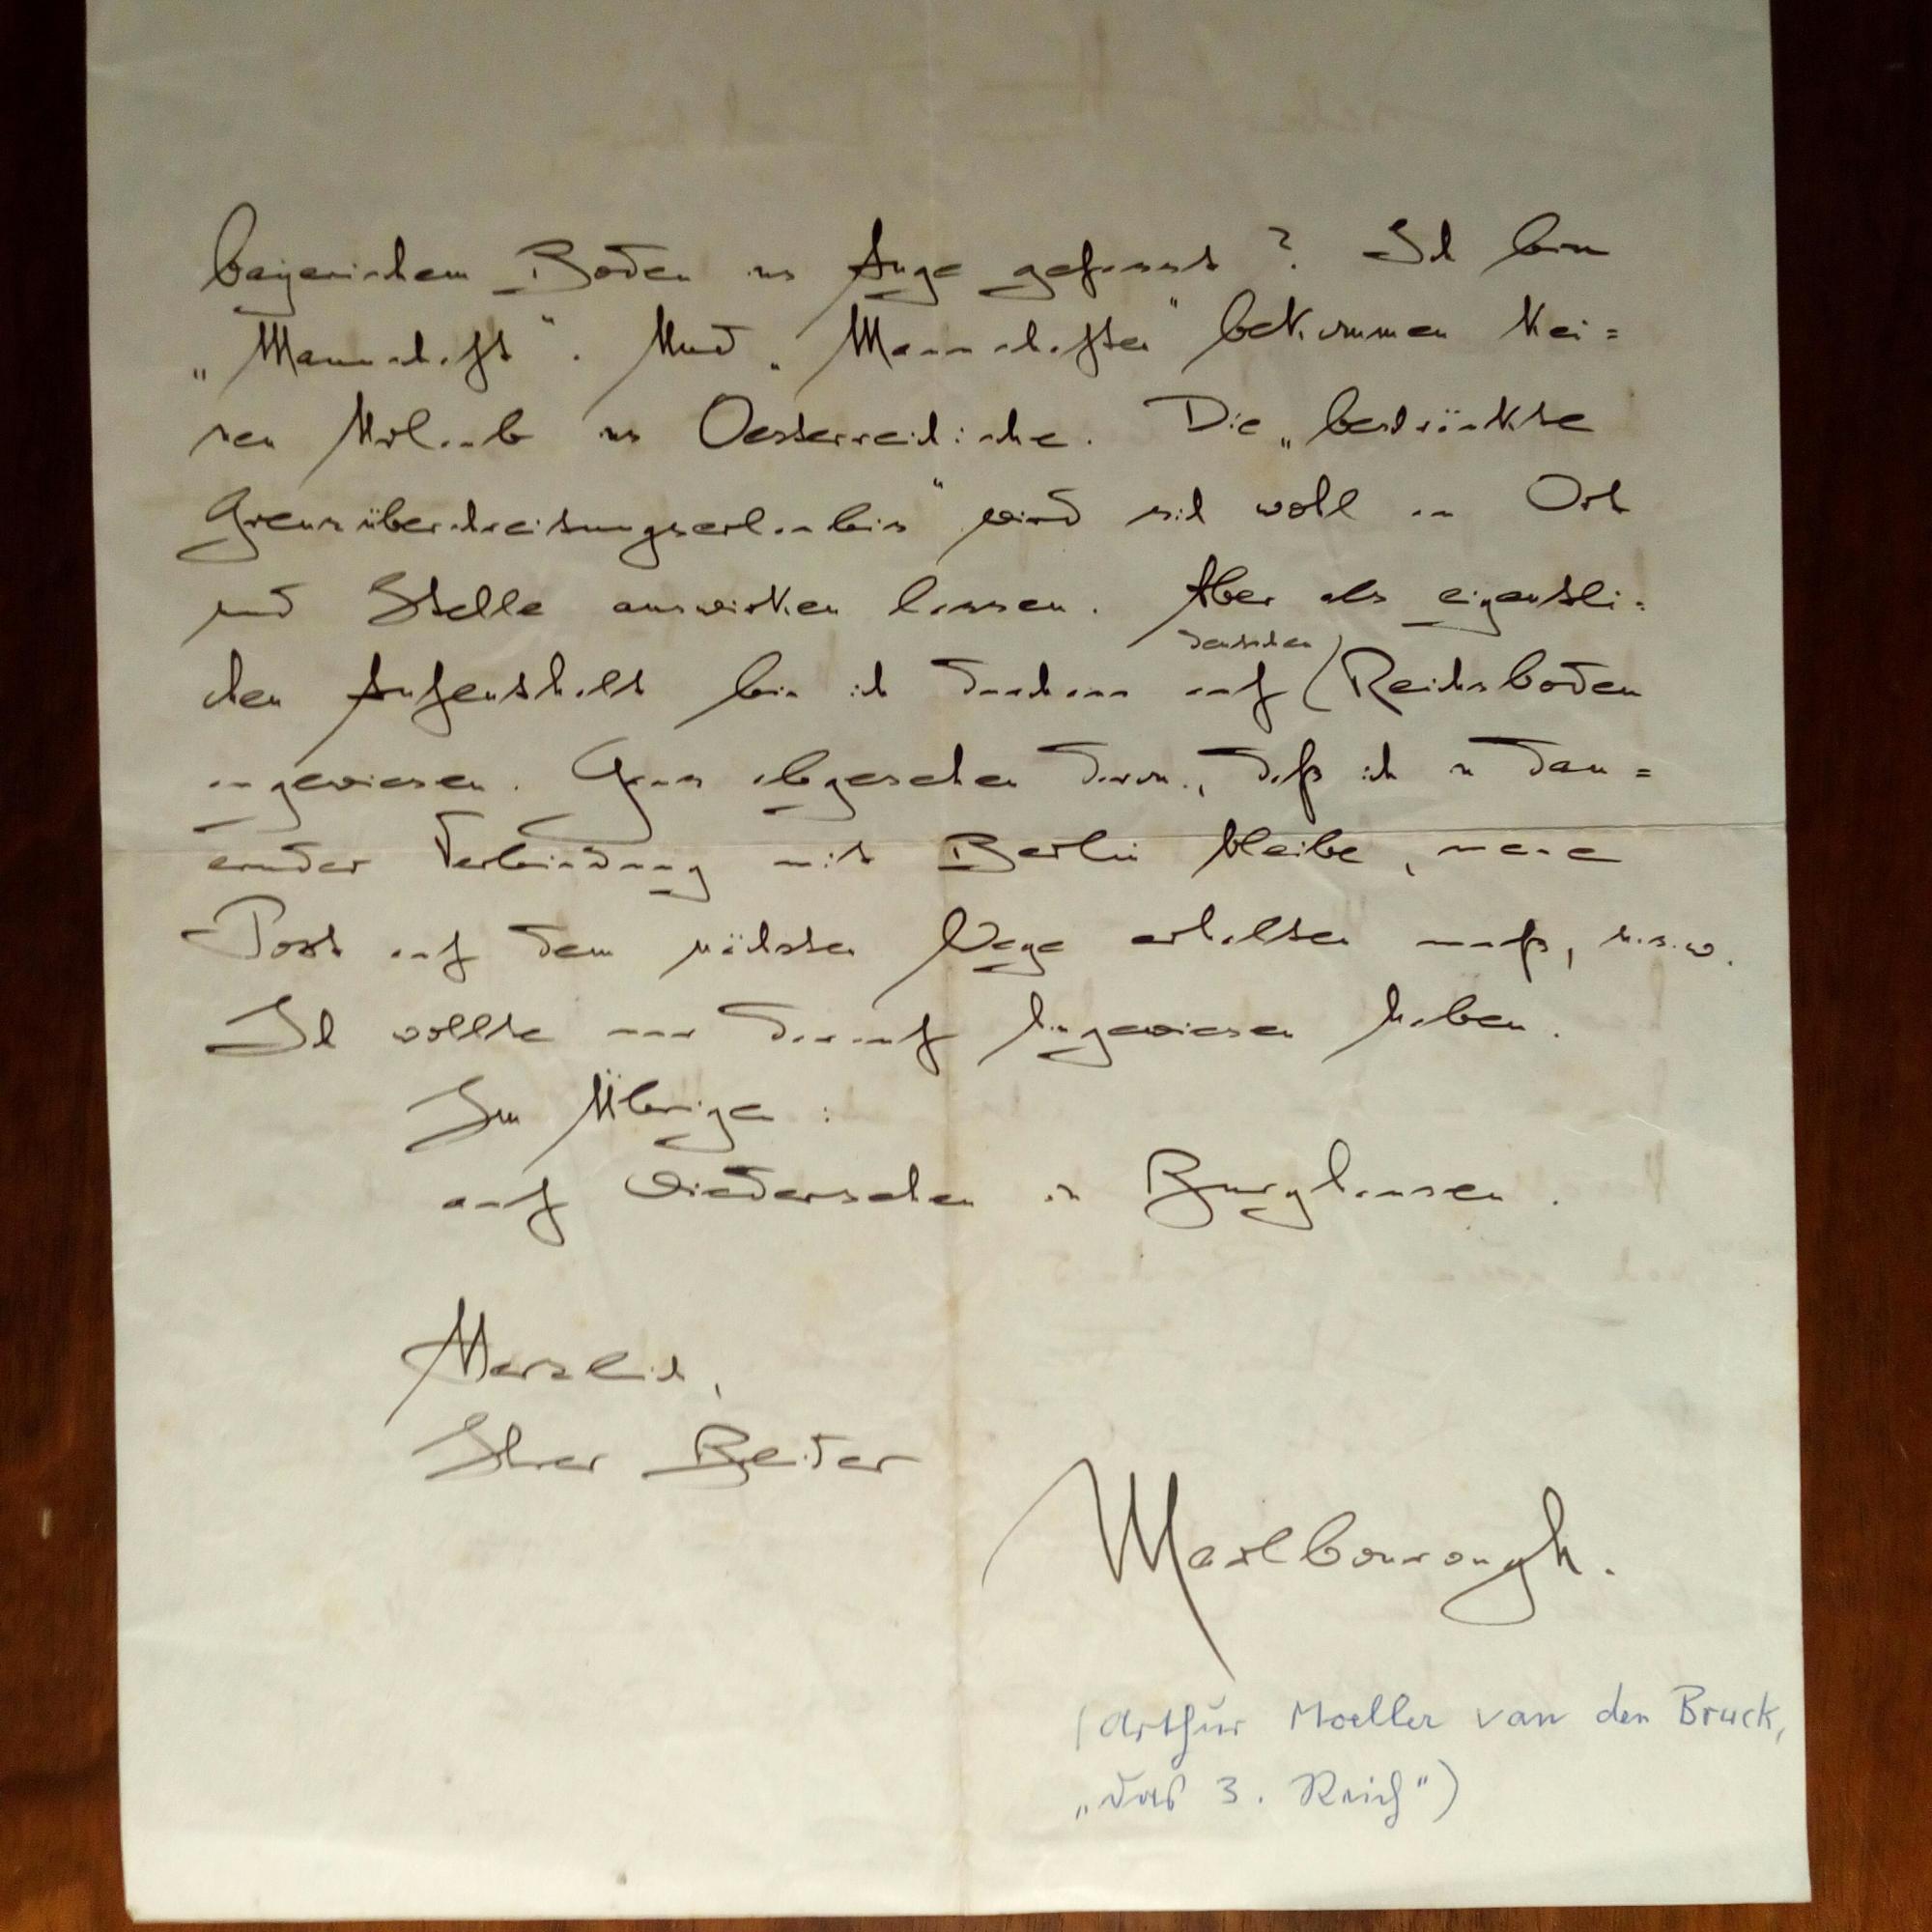 bayerischem Boden ins Auge gefasst? Ich bin
„Mannschaft“. Und „Mannschaften“ bekommen kei=
nen Urlaub ins Oesterreichische. Die „beschränkte
Grenzüberschreitungserlaubnis“ wird sich wohl an Ort
und Stelle auswirken lassen. Aber als eigentli=
chen Aufenthalt bin ich durchaus auf (deutschen) Reichsboden
angewiesen. Ganz abgesehen davon, daß ich in dau=
ernder Verbindung mit Berlin bleibe, meine
Post auf dem nächsten Wege erhalten muß, u.s.w.
Ich wollte nur darauf hingewiesen haben.
Im Übrigen:
auf Wiedersehen in Burghausen.
Herzlich,
Ihrer Beider
Marlbourough.
(Arthur Moeller van den Bruck,
„das 3. Reich“)